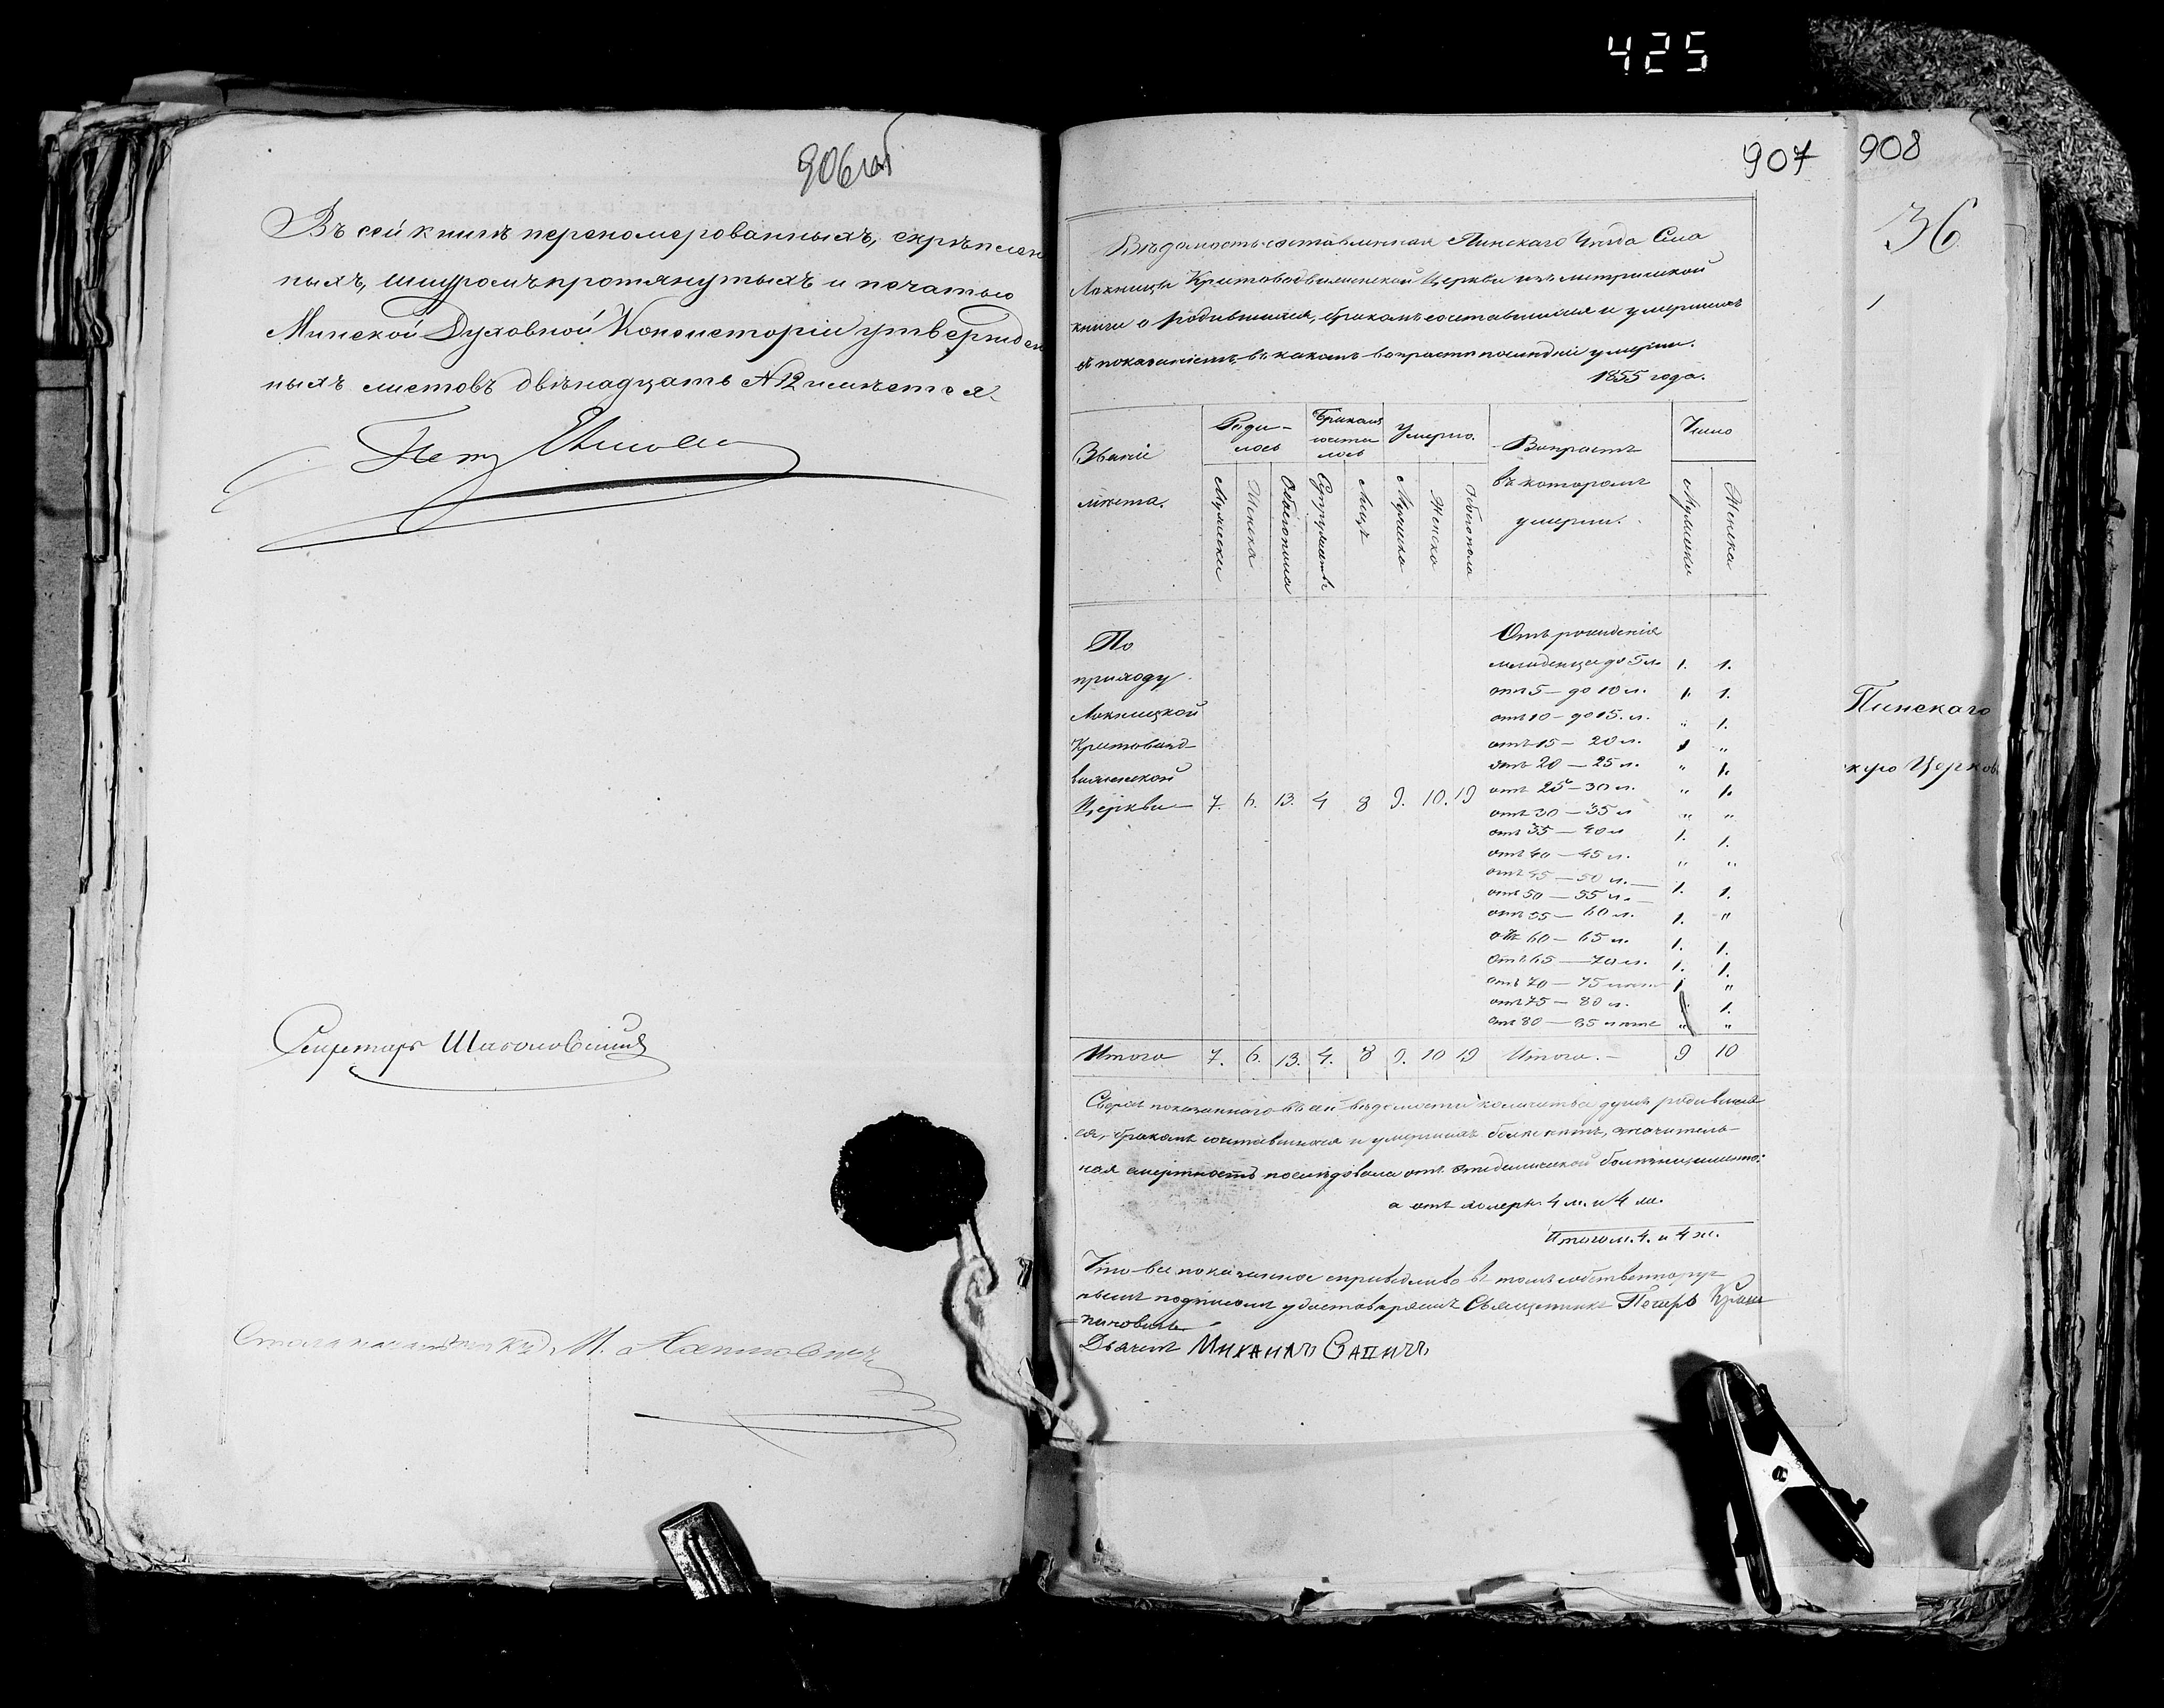 425
906об
Въ сей книгѣ перекомерованныхъ, скрѣплен
ныхъ, шнуромъ протянутыхъ и печатью
Минской Духовной Консисторіи утвержден
ныхъ листовъ двѣнадцать N 12 имѣется.
Секретарь
Столоначальникъ М.
907
Вѣдомость составленная Пинскаго Уѣзда Села
Локницы Крестовоздвиженской Церкви изъ метрической
книги о родившихся, бракомъ сочетавшихся и умершихъ
съ показаніемъ, въ какомъ возрастѣ послѣдніе умерли.
1855 года.
Званіе
мѣста.
Роди-
лось
Бракомъ
сочета
лось
Умерло.
Возрастъ
въ которомъ
умерли.
Число
Мужеска
Женска
Обоегопола
Супружествъ
Лицъ
Мужска
Женска
Обоегопола
Мужска
Женска
По
приходу
Локницкой
Крестовозд-
виженской
Церкви 7. 6. 13. 4 8 9. 10. 19
Отъ рожденія
младенца до 5 л. 1. 1.
отъ 5 – до 10 л. 1. 1.
отъ 10 – до 15. л. " 1.
отъ 15 – 20 л. 1 "
отъ 20 – 25 л. " 1.
отъ 25 – 30 л. " 1.
отъ 30 – 35 л " "
отъ 35 – 40 л 1. 1.
отъ 40 – 45 л. " "
отъ 45 – 50 л.
отъ 50 – 55 л. 1. 1.
отъ 55 – 60 л. 1. "
отъ 60 – 65 л. 1. 1.
отъ 65 – 70 л. 1. 1.
отъ 70 – 75 лѣтъ 1 "
отъ 75 – 80 л. 1.
отъ 80 – 85 лѣтъ " "
Итого 7. 6. 13. 4. 8 9. 10 19 Итого. – 9 10
Сверхъ показаннаго въ сей вѣдомости количества душъ родивших
ся, бракомъ сочетавшихся и умершихъ болѣе нѣтъ, значитель-
ная смертность послѣдовала отъ эпидемической болѣзни
а отъ холеры 4 м. и 4 ж.
Итого м. 4. и 4 ж.
Что все показанное справедливо въ томъ собственноруч
нымъ подписомъ удостовѣряемъ Священникъ Петръ
Дьячекъ Михаилъ Запичъ
908
36
1
Пинскаго
Церков